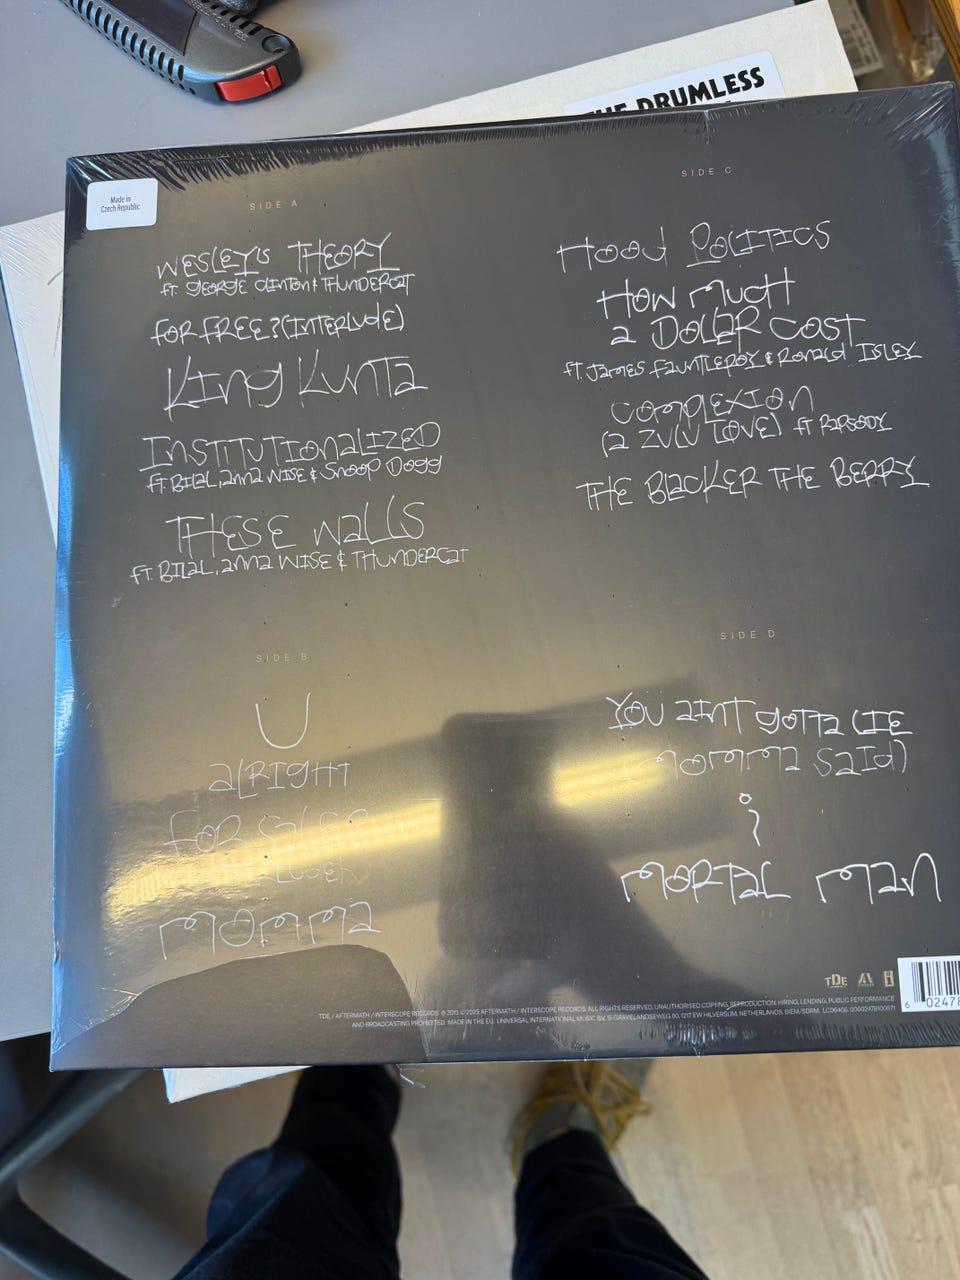 THE DRUMLESS
Made in
Czech Republic
SIDE A
WESLEY'S THEORY
ft. GEORGE CLINTON & THUNDERCAT
FOR FREE? (INTERLUDE)
KING KUNTA
INSTITUTIONALIZED
ft. BILAL, ANNA WISE & SNOOP DOGG
THESE WALLS
ft. BILAL, ANNA WISE & THUNDERCAT
SIDE B
U
ALRIGHT
FOR SALE?
MOMMA
SIDE C
HOOD POLITICS
HOW MUCH
A DOLLAR COST
ft. JAMES FAUNTLEROY & RONALD ISLEY
COMPLEXION
(A ZULU LOVE) ft RAPSODY
THE BLACKER THE BERRY
SIDE D
YOU AINT GOTTA LIE
(MOMMA SAID)
i
MORTAL MAN
TDE
TDE / AFTERMATH / INTERSCOPE RECORDS. ℗ 2015 © 2025 AFTERMATH / INTERSCOPE RECORDS. ALL RIGHTS RESERVED. UNAUTHORISED COPYING, REPRODUCTION, HIRING, LENDING, PUBLIC PERFORMANCE
AND BROADCASTING PROHIBITED. MADE IN THE EU. UNIVERSAL INTERNATIONAL MUSIC B.V. 'S-GRAVELANDSEWEG 80, 1217 EW HILVERSUM, NETHERLANDS. BIEM/SDRM. LC06406.
6 02478